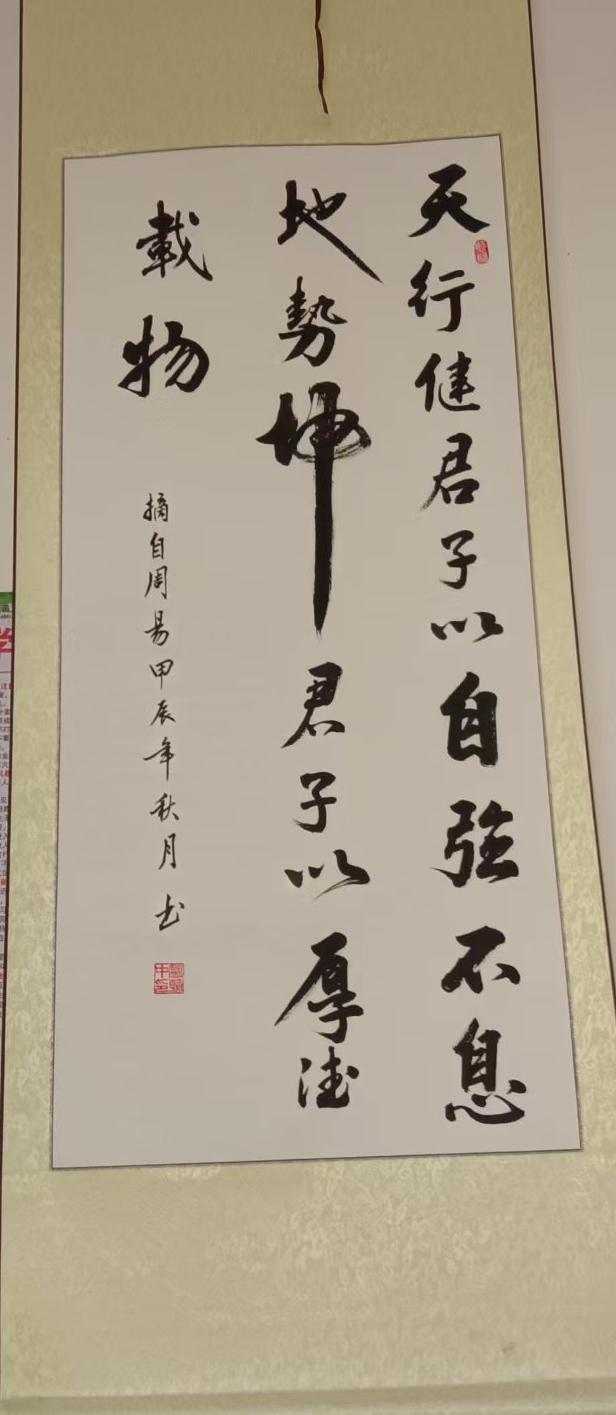 天行健君子以自强不息
地勢坤君子以厚德
載物
摘自周易甲辰年秋月书